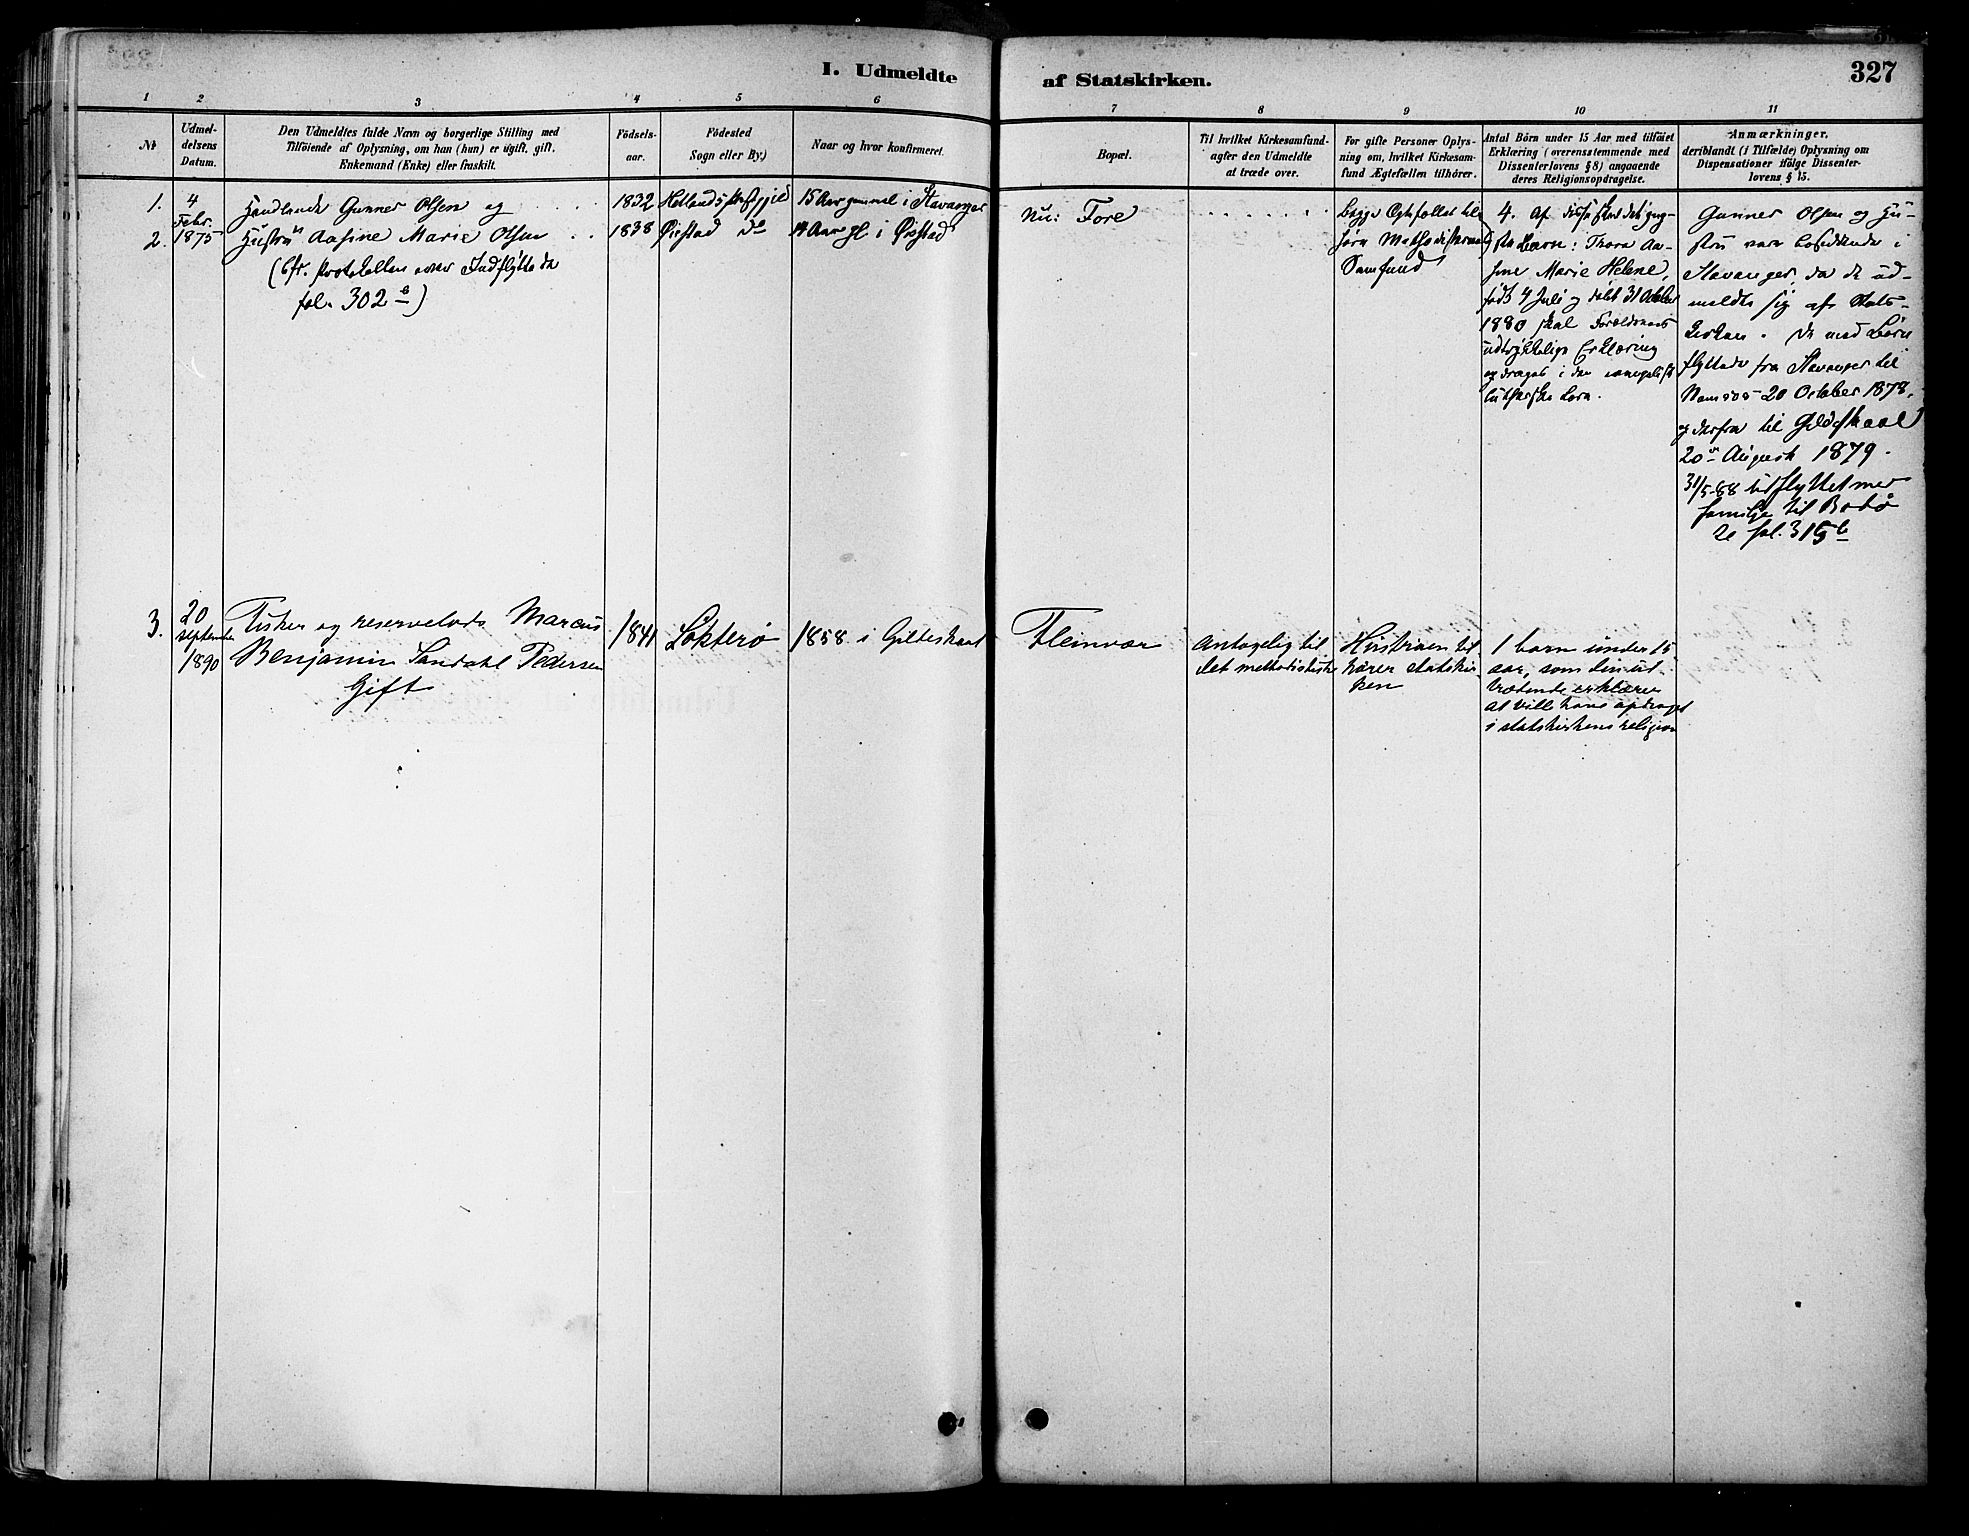 I. Udmeldte
af Statskirken.
327
1
2
3
4
5
6
7
8
9
10
11
№
Udmel-
delsens
Datum.
Den Udmeldtes fulde Navn og borgerlige Stilling med
Tilföiende af Oplysning, om han (hun) er ugift, gift,
Enkemand (Enke) eller fraskilt.
Födsels-
aar.
Födested
Sogn eller By.)
Naar og hvor konfirmeret.
Bopæl.
Til hvilket Kirkesamfund-
agter den Udmeldte
at træde over.
For gifte Personer Oplys-
ning om, hvilket Kirkesam-
fund Ægtefællen tilhörer.
Antal Börn under 15 Aar, med tilföiet
Erklæring (overensstemmende med
Dissenterlovens § 8) angaaende
deres Religionsopdragelse.
Anmærkninger,
deriblandt (i Tilfælde) Oplysning om
Dispensationer ifölge Dissenter-
lovens § 15.
1.
2.
4
Febr.
1875
Handlende Gunner Olsen og
Hustru Aasine Marie Olsen
(cfr. Protokollen over Indflyttede
fol. 302 b)
1832
1838
Hetlands Præstegjeld
Øiestad Do
15 Aar gammel i Stavanger
14 Aar gl. i Øiestad
Nu: Fore
Begge Ægtefæller til-
høre Methodisternes
Samfund
4. Af disse skal det yng-
ste Barn: Thora Aa-
sine Marie Helene,
født 4 Juli og døbt 31 October
1880 skal Forældrenes
udtrykkelige Erklæring
opdrages i den evangelisk
lutherske Lære.
Gunner Olsen og Hu-
stru vare bosiddende i
Stavanger, da de ud-
meldte sig af Stats-
kirken. De med Børn
flyttede fra Stavanger til
Namsos 20 October 1878,
og derfra til Gildeskaal
20de August 1879.
31/5-88 udflyttet med
familje til Bodø
se fol. 315 b
3.
20
september
1890
Fisker og reservelods Marcus
Benjamin Sandahl Pedersen
Gift
1841
Løkterø
1858 i Gildeskaal
Fleinvær
Antagelig til
det methodistiske
Hustruen til
hører statskir-
ken
1 barn under 15
aar, som den ud-
trædende erklærer
at ville have opdraget
i statskirkens religion